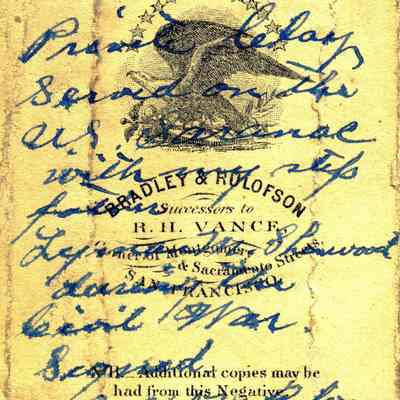 Private Clay
Served on the
U.S. Saranac
with my step
father
BRADLEY & RULOFSON
Successors to
R. H. VANCE
Corner of Montgomery
& Sacramento Streets,
SAN FRANCISCO.
Sherwood
during the
Civil War.
Signed
N.B. Additional copies may be
had from this Negative